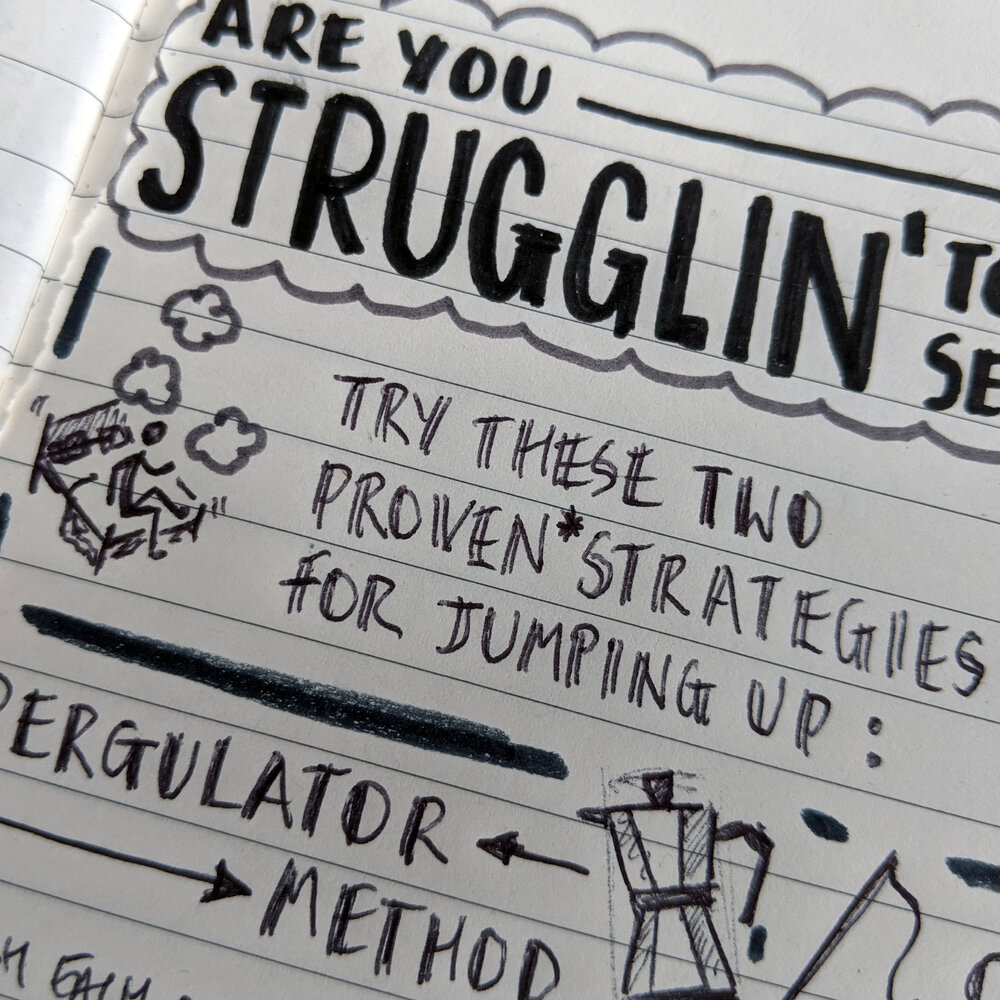 ARE YOU
STRUGGLIN' TO
SE
TRY THESE TWO
PROVEN* STRATEGIES
FOR JUMPING UP:
PERGULATOR
METHOD
H EACH